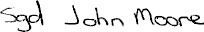 Sgd John Moore